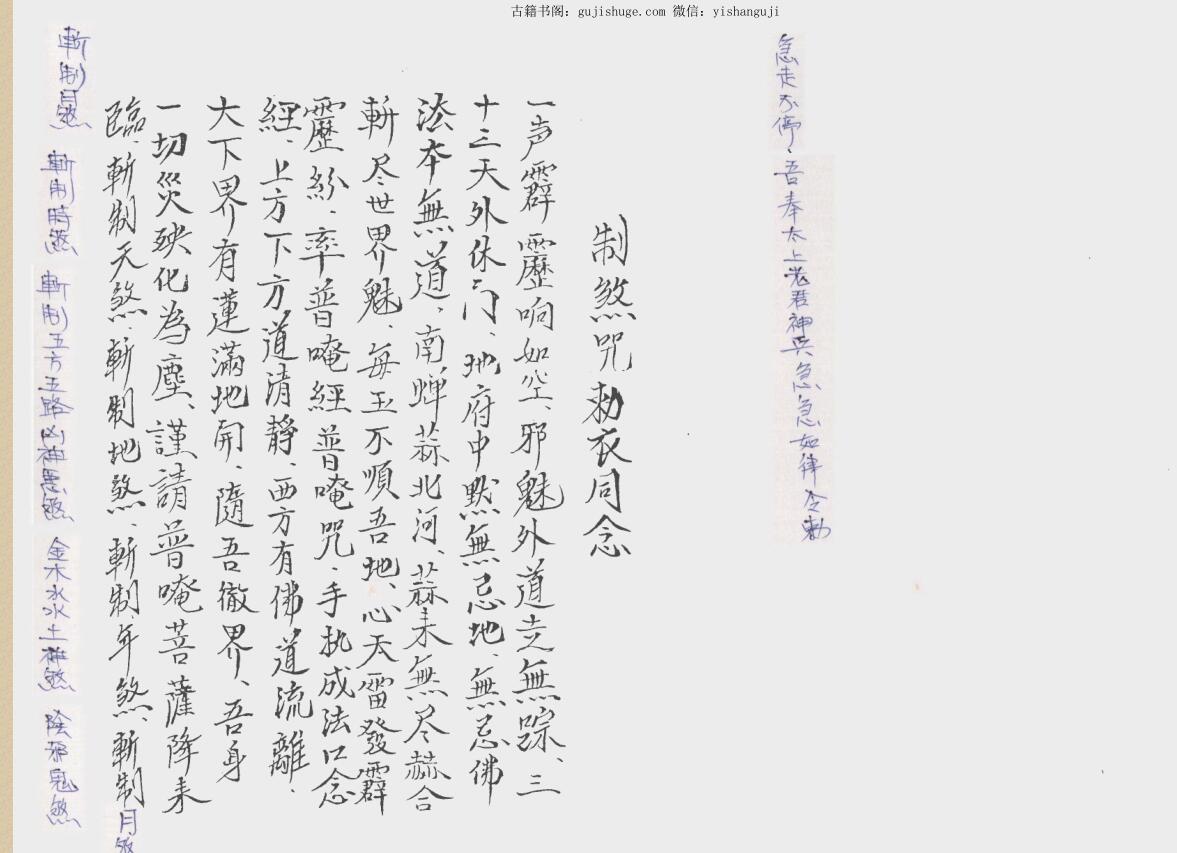 古籍书阁：gujishuge.com 微信：yishanguji
急走不停、吾奉太上老君神兵急急如律令勅
制煞咒勅衣同念
一声霹靂响如空、邪魅外道走無踪、三
十三天外休门、地府中默無忌地、無忌佛
法本無道、南蝉蒜北河、蒜来無尽赫合
斬尽世界魅、每玉不順吾地、心天雷發霹
靂紛、率普唵經普唵咒、手执成法口念
經、上方下方道清靜、西方有佛道流離、
大下界有蓮滿地開、隨吾徹界、吾身
一切災殃化為塵、謹請普唵菩薩降来
臨、斬制天煞、斬制地煞、斬制年煞、斬制月煞
斬制月煞 斬制時煞 斬制五方五路凶神惡煞 金木水火土神煞 陰邪鬼煞